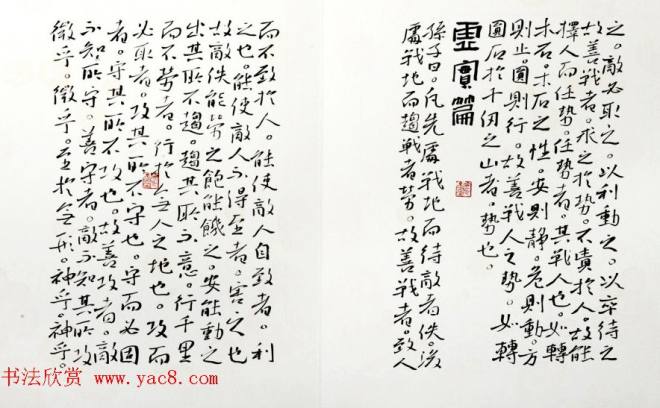 之。敵必取之。以利動之。以卒待之
故善戰者。求之於勢。不責於人。故能
擇人而任勢。任勢者。其戰人也。如轉
木石。木石之性。安則靜。危則動。方
則止。圓則行。故善戰人之勢。如轉
圓石於千仞之山者。勢也。
虛實篇
孫子曰。凡先處戰地而待敵者佚。後
處戰地而趨戰者勞。故善戰者。致人
而不致於人。能使敵人自致者。利
之也。能使敵人不得至者。害之也
故敵佚能勞之飽能饑之。安能動之
出其所不趨。趨其所不意。行千里
而不勞者。行於無人之地也。攻而
必取者。攻其所不守也。守而必固
者。守其所不攻也。故善攻者。敵
不知所守。善守者。敵不知其所攻
微乎。微乎。至於無形。神乎。神乎。
书法欣赏 www.yac8.com